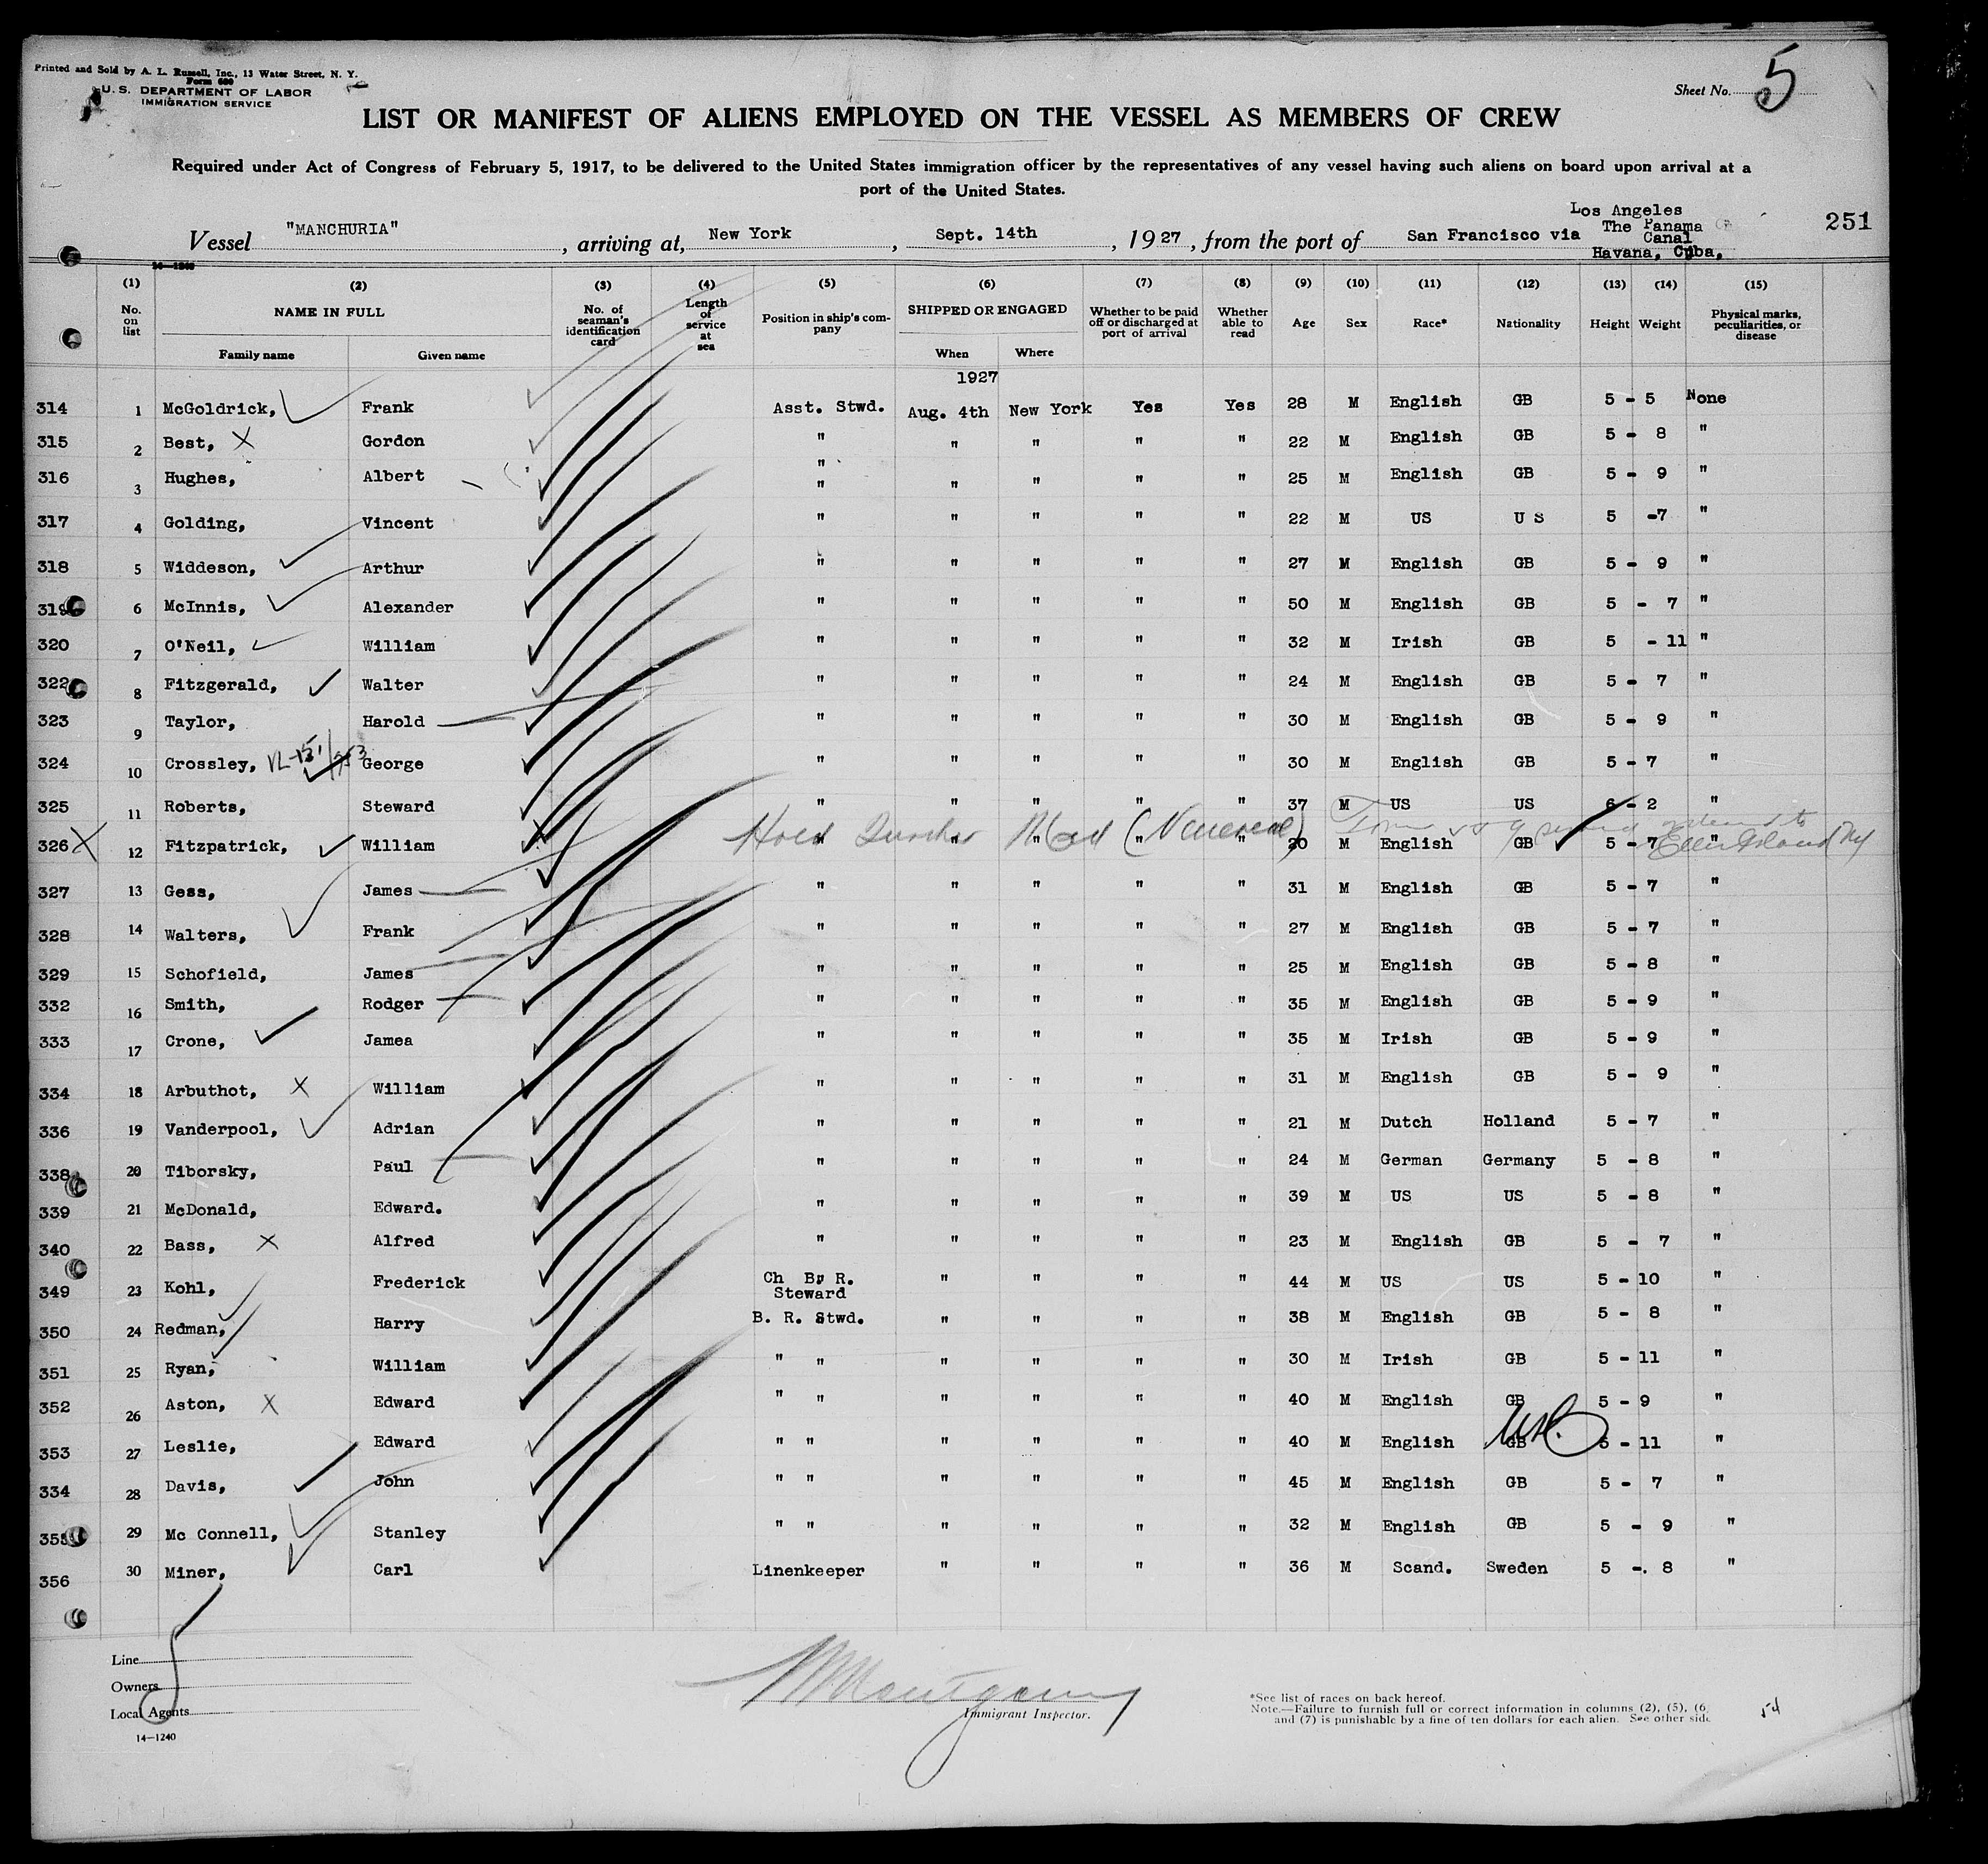 Printed and Sold by A. L. Russell, Inc., 13 Water Street, N. Y.
Form 680
U. S. DEPARTMENT OF LABOR
IMMIGRATION SERVICE
Sheet No. 5
LIST OR MANIFEST OF ALIENS EMPLOYED ON THE VESSEL AS MEMBERS OF CREW
Required under Act of Congress of February 5, 1917, to be delivered to the United States immigration officer by the representatives of any vessel having such aliens on board upon arrival at a
port of the United States.
Vessel "MANCHURIA", arriving at, New York, Sept. 14th, 1927, from the port of San Francisco via Los Angeles The Panama Canal Havana, Cuba,
251
14-1240
(1) (2) (3) (4) (5) (6) (7) (8) (9) (10) (11) (12) (13) (14) (15)
No. on list NAME IN FULL No. of seaman's identification card Length of service at sea Position in ship's company SHIPPED OR ENGAGED Whether to be paid off or discharged at port of arrival Whether able to read Age Sex Race* Nationality Height Weight Physical marks, peculiarities, or disease
Family name Given name When Where
1927
314 1 McGoldrick, Frank Asst. Stwd. Aug. 4th New York Yes Yes 28 M English GB 5 - 5 None
315 2 Best, X Gordon " " " " " 22 M English GB 5 - 8 "
316 3 Hughes, Albert " " " " " " 25 M English GB 5 - 9 "
317 4 Golding, Vincent " " " " " 22 M US U S 5 -7 "
318 5 Widdeson, Arthur " " " " " 27 M English GB 5 - 9 "
319 6 McInnis, Alexander " " " " " 50 M English GB 5 - 7 "
320 7 O'Neil, William " " " " " 32 M Irish GB 5 - 11 "
322 8 Fitzgerald, Walter " " " " " 24 M English GB 5 - 7 "
323 9 Taylor, Harold " " " " " 30 M English GB 5 - 9 "
324 10 Crossley, George " " " " " 30 M English GB 5 - 7 "
325 11 Roberts, Steward " " " " " 37 M US US 6 - 2 "
Hold (Venereal) ordered to
326 X 12 Fitzpatrick, William " " " " " 20 M English GB 5 - 7 " Ellis Island NY
327 13 Gess, James " " " " " 31 M English GB 5 - 7 "
328 14 Walters, Frank " " " " " 27 M English GB 5 - 7 "
329 15 Schofield, James " " " " " 25 M English GB 5 - 8 "
332 16 Smith, Rodger " " " " " 35 M English GB 5 - 9 "
333 17 Crone, Jamea " " " " " 35 M Irish GB 5 - 9 "
334 18 Arbuthot, X William " " " " " 31 M English GB 5 - 9 "
336 19 Vanderpool, Adrian " " " " " 21 M Dutch Holland 5 - 7 "
338 20 Tiborsky, Paul " " " " " 24 M German Germany 5 - 8 "
339 21 McDonald, Edward. " " " " " 39 M US US 5 - 8 "
340 22 Bass, X Alfred " " " " " 23 M English GB 5 - 7 "
349 23 Kohl, Frederick Ch B. R. Steward " " " " 44 M US US 5 - 10 "
350 24 Redman, Harry B. R. Stwd. " " " " 38 M English GB 5 - 8 "
351 25 Ryan, William " " " " " " 30 M Irish GB 5 - 11 "
352 26 Aston, X Edward " " " " " " 40 M English GB 5 - 9 "
353 27 Leslie, Edward " " " " " " 40 M English GB 5 - 11 "
334 28 Davis, John " " " " " " 45 M English GB 5 - 7 "
355 29 Mc Connell, Stanley " " " " " " 32 M English GB 5 - 9 "
356 30 Miner, Carl Linenkeeper " " " " 36 M Scand. Sweden 5 -. 8 "
Line
Owners
Local Agents
14-1240
Montgomery
Immigrant Inspector.
*See list of races on back hereof.
Note.—Failure to furnish full or correct information in columns (2), (5), (6)
and (7) is punishable by a fine of ten dollars for each alien. See other side
54